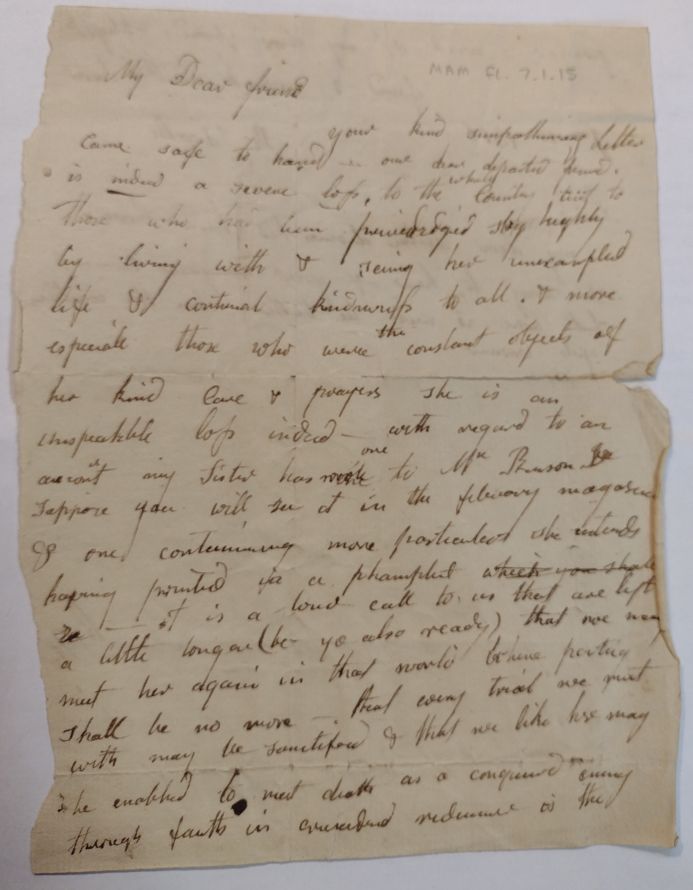 MAM FL. 7.1.15
My Dear friend
your kind simpathining Letter
Came safe to hand our dear departed friend.
is indeed a severe loss, to the whole
those who had been priveledged highly
by living with & seing her unexampled
life & continial kindness to all . & more
especialé those who weere the constant objects of
her kind Care & prayers she is an
unspeakble loss indeed — with regard to an
my Sister has one to Mr Benson
Suppose you will see it in the magasen
& one containing more particulars she intends
having printed in a phamplet which you shall
— it is a loud call to us that are left
a little longer (be ye also ready) that we may
meet her again in that world where parting
Shall be no more — that every trial we meet
with may be sanctified & that we like her may
be enabled to meet death as a conquered enemy
through faith in redeemer is the